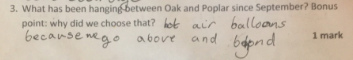 3. What has been hanging between Oak and Poplar since September? Bonus
point: why did we choose that? hot air balloons
because we go above and beyond
1 mark